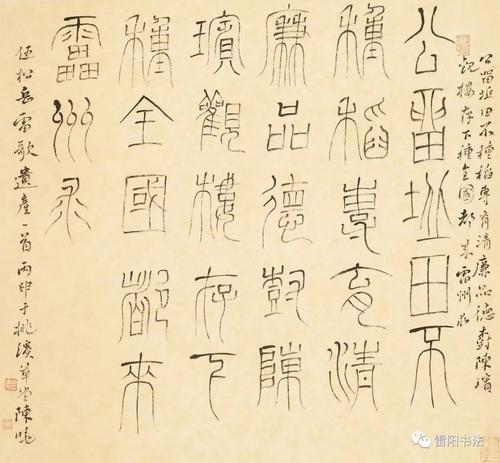 公留坵田不種稻專育清廉品德尌陳璸
觀樓存下種全國都來雷州求
公留坵田不
種稻專育清
廉品德尌陳
璸觀樓存下
種全國都來
雷州求
伍松岳雷歌遺產一首丙申于草堂陳
雷阳书法